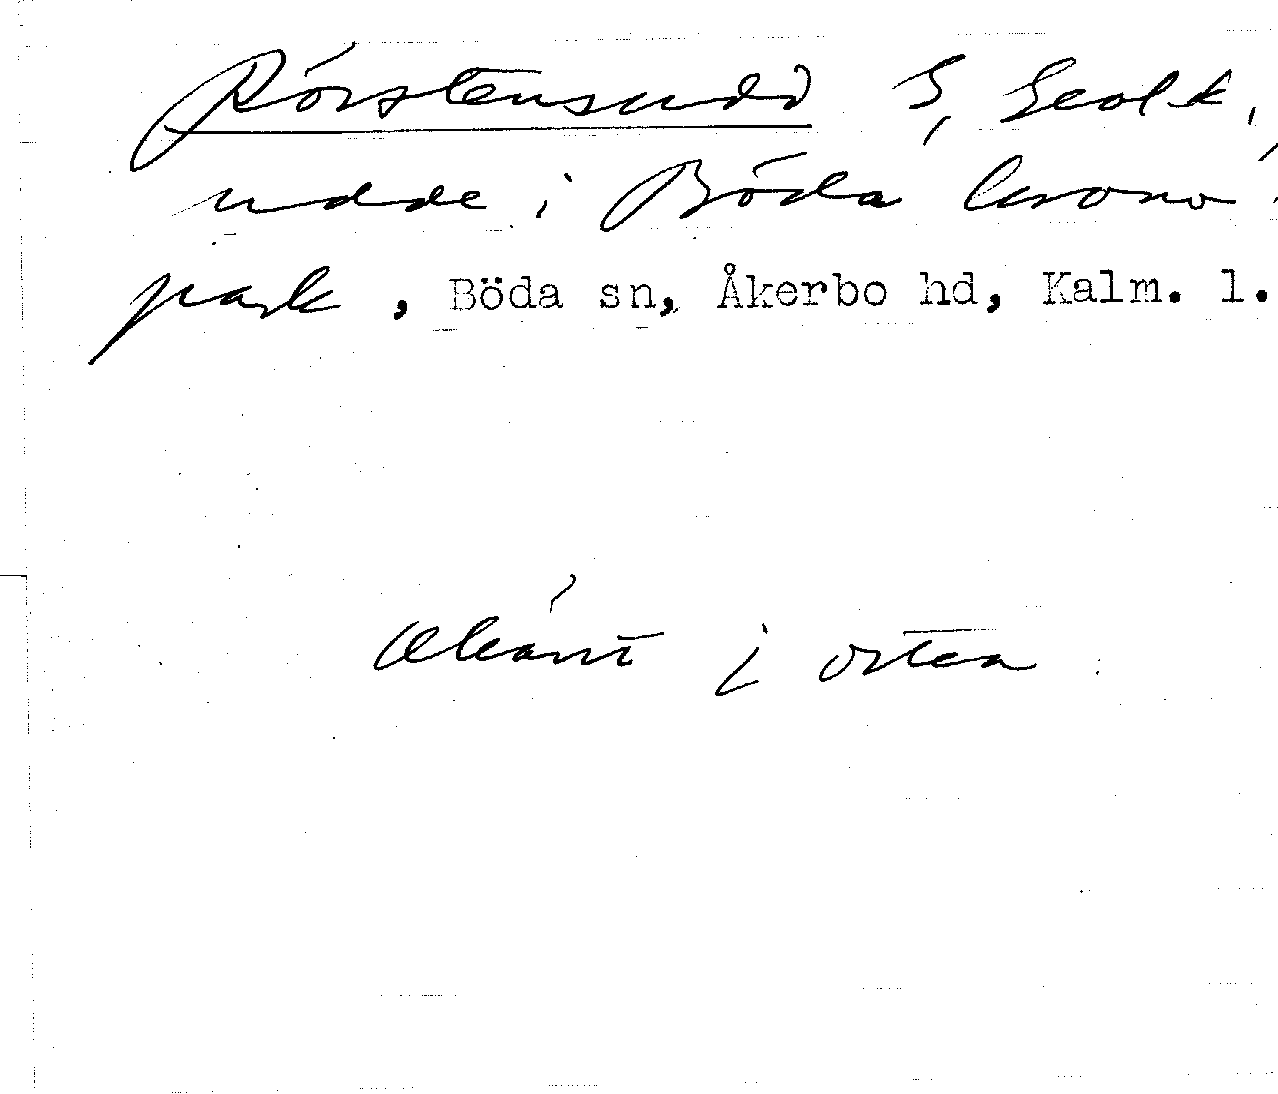 Rörstensudd S, Geol k,
udde i Böda krono-
park, Böda sn, Åkerbo hd, Kalm. l.
Okänt i orten